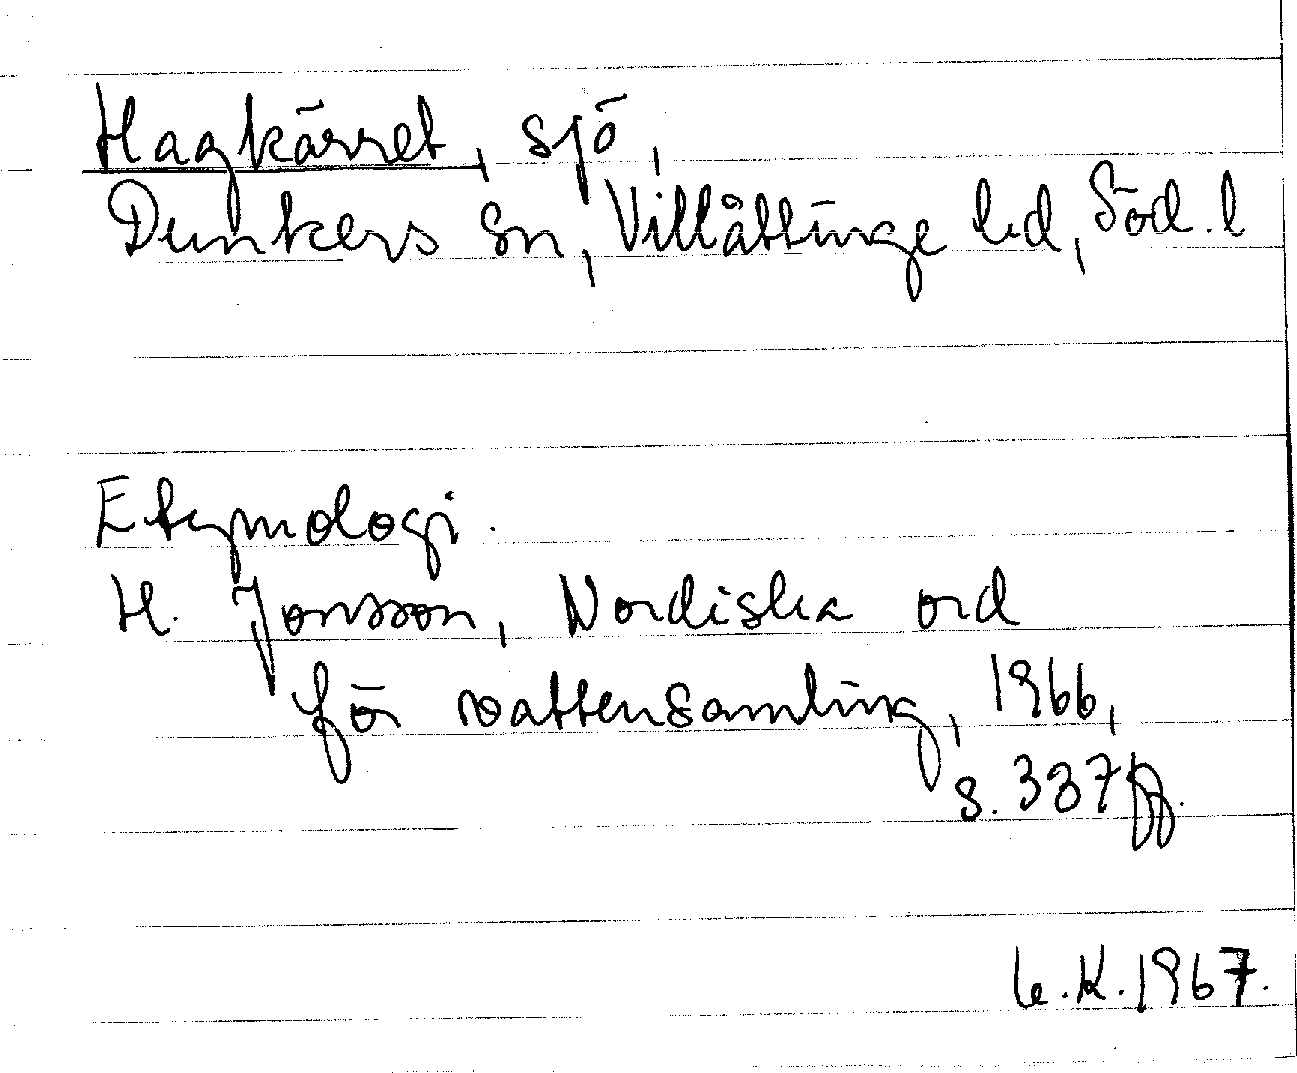 Hagkärret, sjö,
Dunkers sn, Villåttinge hd, Söd. l
Etymologi.
H. Jonsson, Nordiska ord
för vattensamling, 1966,
s. 337 ff.
K. 1967.